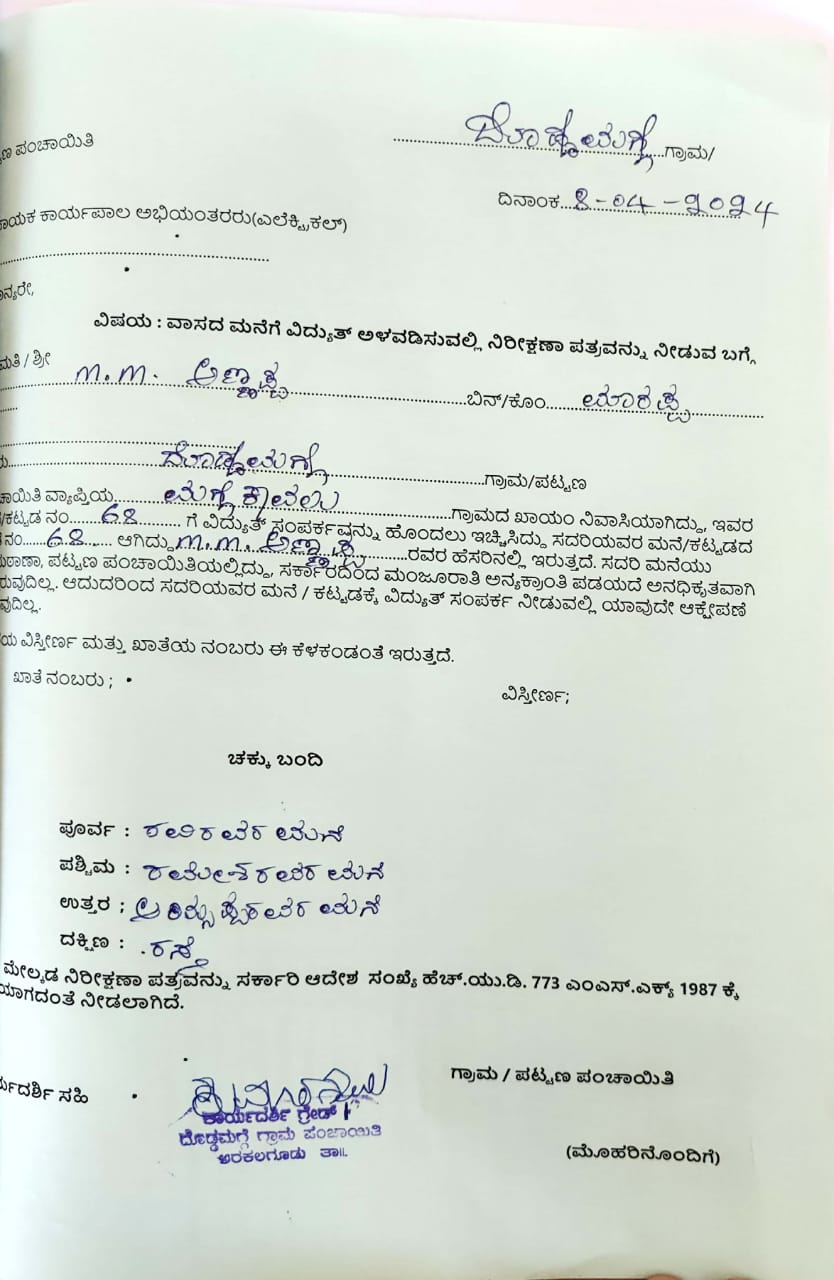 ದೊಡ್ಡಮಗ್ಗೆ ಗ್ರಾಮ/
ಣ ಪಂಚಾಯಿತಿ
ದಿನಾಂಕ 8-04-2024
ಾಯಕ ಕಾರ್ಯಪಾಲ ಅಭಿಯಂತರರು(ಎಲೆಕ್ಟ್ರಿಕಲ್)
ಾನ್ಯರೇ,
ವಿಷಯ : ವಾಸದ ಮನೆಗೆ ವಿದ್ಯುತ್ ಅಳವಡಿಸುವಲ್ಲಿ ನಿರೀಕ್ಷಣಾ ಪತ್ರವನ್ನು ನೀಡುವ ಬಗ್ಗೆ
ಮತಿ / ಶ್ರೀ M.M. ಅಣ್ಣಾಪ್ಪ ಬಿನ್/ಕೊಂ ಮಾರಪ್ಪ
ದೊಡ್ಡಮಗ್ಗೆ ಗ್ರಾಮ/ಪಟ್ಟಣ
ಚಾಯಿತಿ ವ್ಯಾಪ್ತಿಯ ಮಗ್ಗೆ ಕಾವಲು ಗ್ರಾಮದ ಖಾಯಂ ನಿವಾಸಿಯಾಗಿದ್ದು, ಇವರ
/ಕಟ್ಟಡ ನಂ 68 ಗೆ ವಿದ್ಯುತ್ ಸಂಪರ್ಕವನ್ನು ಹೊಂದಲು ಇಚ್ಚಿಸಿದ್ದು ಸದರಿಯವರ ಮನೆ/ಕಟ್ಟಡದ
ನಂ 68 ಆಗಿದ್ದು M.M. ಅಣ್ಣಾಪ್ಪ ರವರ ಹೆಸರಿನಲ್ಲಿ ಇರುತ್ತದೆ. ಸದರಿ ಮನೆಯು
ಠಾಣಾ, ಪಟ್ಟಣ ಪಂಚಾಯಿತಿಯಲ್ಲಿದ್ದು, ಸರ್ಕಾರದಿಂದ ಮಂಜೂರಾತಿ ಅನ್ಯಕ್ರಾಂತಿ ಪಡಯದೆ ಅನಧಿಕೃತವಾಗಿ
ರುವುದಿಲ್ಲ. ಆದುದರಿಂದ ಸದರಿಯವರ ಮನೆ / ಕಟ್ಟಡಕ್ಕೆ ವಿದ್ಯುತ್ ಸಂಪರ್ಕ ನೀಡುವಲ್ಲಿ ಯಾವುದೇ ಆಕ್ಷೇಪಣೆ
ವುದಿಲ್ಲ.
ಯ ವಿಸ್ತೀರ್ಣ ಮತ್ತು ಖಾತೆಯ ನಂಬರು ಈ ಕೆಳಕಂಡಂತೆ ಇರುತ್ತದೆ.
ಖಾತೆ ನಂಬರು ; ವಿಸ್ತೀರ್ಣ;
ಚಕ್ಕು ಬಂದಿ
ಪೂರ್ವ : ರವಿರವರ ಮನೆ
ಪಶ್ಚಿಮ : ರಮೇಶರವರ ಮನೆ
ಉತ್ತರ ; ರವರ ಮನೆ
ದಕ್ಷಿಣ : ರಸ್ತೆ
ಮೇಲ್ಕಡ ನಿರೀಕ್ಷಣಾ ಪತ್ರವನ್ನು ಸರ್ಕಾರಿ ಆದೇಶ ಸಂಖ್ಯೆ ಹೆಚ್.ಯು.ಡಿ. 773 ಎಂಎಸ್.ಎಕ್ಯ್ 1987 ಕ್ಕೆ
ಯಾಗದಂತೆ ನೀಡಲಾಗಿದೆ.
ಗ್ರಾಮ / ಪಟ್ಟಣ ಪಂಚಾಯಿತಿ
ರ್ಯದರ್ಶಿ ಸಹಿ
ಕಾರ್ಯದರ್ಶಿ ಗ್ರೇಡ್ 1
ದೊಡ್ಡಮಗ್ಗೆ ಗ್ರಾಮ ಪಂಚಾಯಿತಿ
ಅರಕಲಗೂಡು ತಾ॥.
(ಮೊಹರಿನೊಂದಿಗೆ)